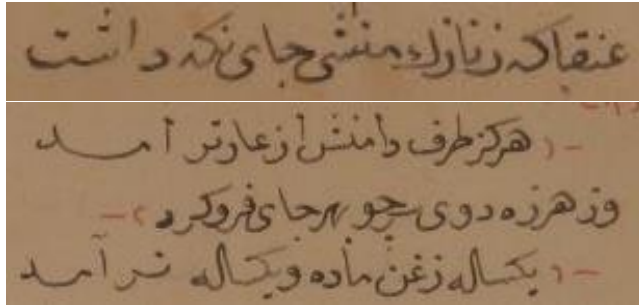 عنقا که ز نازک منشی جای نکه داشت
هرکز طرف دامنش از عار تر آمد
وز هرزه دوی سر چو بهر جای فرو کرد
یکساله زغن ماده و یکساله نر آمد